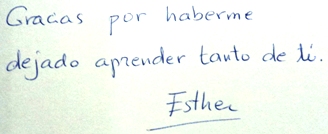 Gracias por haberme
dejado aprender tanto de ti.
Esther